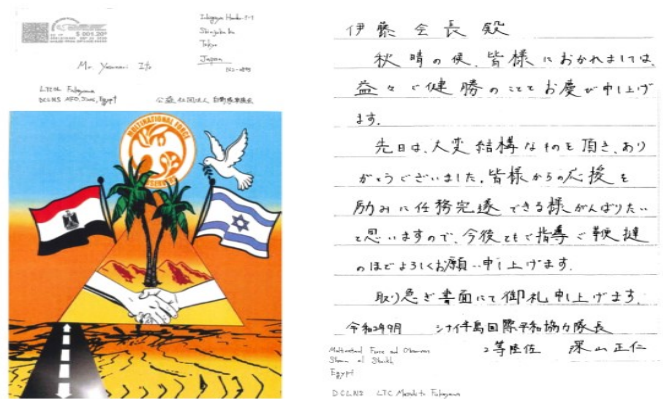 $ 001.20
Ichigaya Honmura-cho
Shinjuku-ku
Tokyo
Japan
162-8801
Mr. Yasunari Ito
LTC Fukayama
DCLNS MFO, Sinai, Egypt
公益社団法人 自衛隊家族会
MULTINATIONAL FORCE
OBSERVERS
伊藤会長殿
秋晴の候、皆様におかれましては、
益々ご健勝のこととお慶び申し上げ
ます。
先日は、大変結構なものを頂き、あり
がとうございました。皆様からの応援を
励みに任務完遂できる様がんばりたい
と思いますので、今後ともご指導ご鞭撻
のほどよろしくお願い申し上げます。
取り急ぎ書面にて御礼申し上げます。
令和2年9月 シナイ半島国際平和協力隊長
2等陸佐 深山正仁
Multinational Force and Observers
Sharm el Sheikh
Egypt
DCLNS LTC Masahito Fukayama